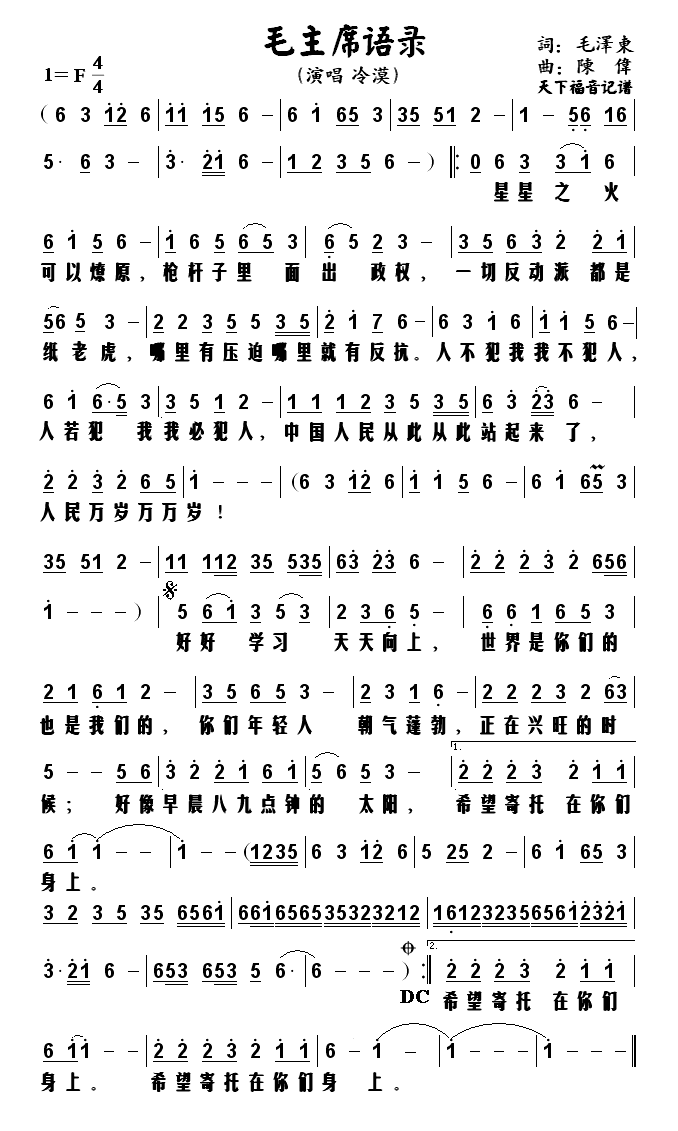 毛主席语录
(演唱 冷漠)
詞：毛澤東
曲：陳 偉
天下福音记谱
1=F 4/4
( 6 3 12 6 | 11 15 6 – | 6 1 65 3 | 35 51 2 – | 1 – 56 16
5· 6 3 – | 3· 21 6 – | 1 2 3 5 6 – ) ‖: 0 6 3 3 1 6
星星之火
6 1 5 6 – | 1 6 5 6 5 3 | 6 5 2 3 – | 3 5 6 3 2 2 1
可以燎原，枪杆子里 面出 政权，一切反动派都是
56 5 3 – | 2 2 3 5 5 35 | 2 1 7 6 – | 6 3 1 6 | 1 1 5 6 –
纸老虎，哪里有压迫哪里就有反抗。人不犯我我不犯人，
6 1 6·5 3 | 3 5 1 2 – | 1 1 1 2 3 5 35 | 6 3 23 6 –
人若犯 我我必犯人，中国人民从此从此站起来了，
2 2 3 2 6 5 | 1 – – – | (6 3 12 6 | 1 1 5 6 – | 6 1 65 3
人民万岁万万岁！
35 51 2 – | 11 112 35 535 | 63 23 6 – | 2 2 2 3 2 656
1 – – – ) | 5 6 1 3 5 3 | 2 3 6 5 – | 6 6 1 6 5 3
好好 学习 天天向上，世界是你们的
2 1 6 1 2 – | 3 5 6 5 3 – | 2 3 1 6 – | 2 2 2 3 2 63
也是我们的，你们年轻人 朝气蓬勃，正在兴旺的时
1.
5 – – 5 6 | 3 2 2 1 6 1 | 5 6 5 3 – | 2 2 2 3 2 2 2
候；好像早晨八九点钟的 太阳，希望寄托在你们
6 1 1 – – | 1 – – (1235 | 6 3 12 6 | 5 25 2 – | 6 1 65 3
身上。
3 2 3 5 35 6561 | 661656535323212 | 1612323565612321
2.
3·21 6 – | 653 653 5 6· | 6 – – – ) :‖ 2 2 2 3 2 1 1
DC 希望寄托 在你们
6 11 – – | 2 2 2 3 2 1 1 | 6 – 1 – | 1 – – – | 1 – – – ‖
身上。 希望寄托在你们身 上。